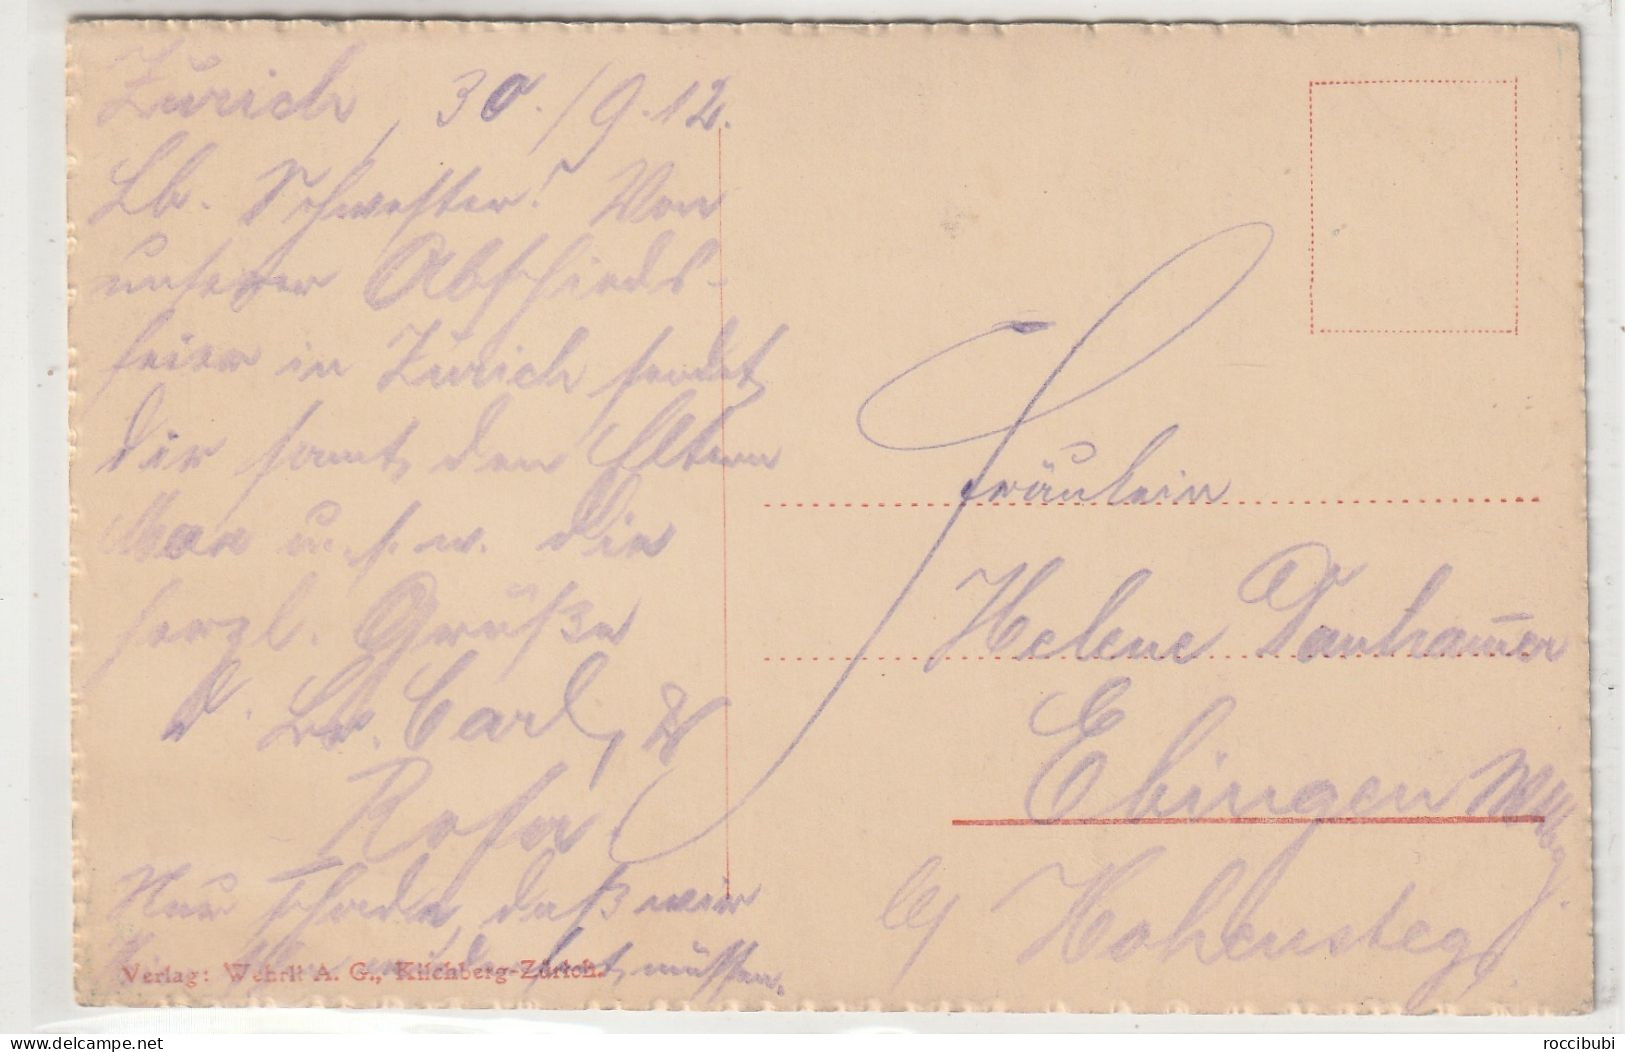 Zürich, 30./9.12.
Lb. Schwester! Von
unserer Abschieds-
feier in Zürich sendet
dir samt den Eltern
Max u.s.w. die
herzl. Grüße
d. Br. Carl, &
Rosa
Nur schade, daß wir
müssen.
Verlag: Wehrli A. G., Kilchberg-Zürich.
Fräulein
Helene Danham̄er
Ebingen Württbg.
Hohensteg
roccibubi